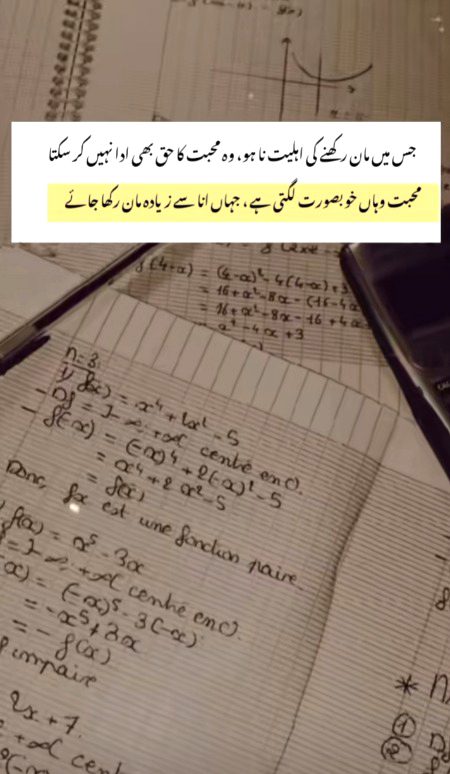 جس میں مان رکھنے کی اہلیت نا ہو، وہ محبت کا حق بھی ادا نہیں کر سکتا
محبت وہاں خوبصورت لگتی ہے، جہاں انا سے زیادہ مان رکھا جائے
f(4-x) = (4-x)² - 4(4-x)+3
= 16+x²-8x-(16-4x
= 16+x²-8x-16+4x
x²-4x+3
n=3.
1) f(x) = x⁴+2x²-5
- Df = ]-∞,+∞[ centré en 0.
- f(-x) = (-x)⁴+2(-x)²-5
= x⁴+2x²-5
= f(x)
Donc, fx est une fonction paire.
f(x) = x⁵-3x
= ]-∞,+∞[ centré en 0.
-x) = (-x)⁵-3(-x)
= -x⁵+3x
= -f(x)
impaire
2x+7.
+∞[ cent
* n
①
②